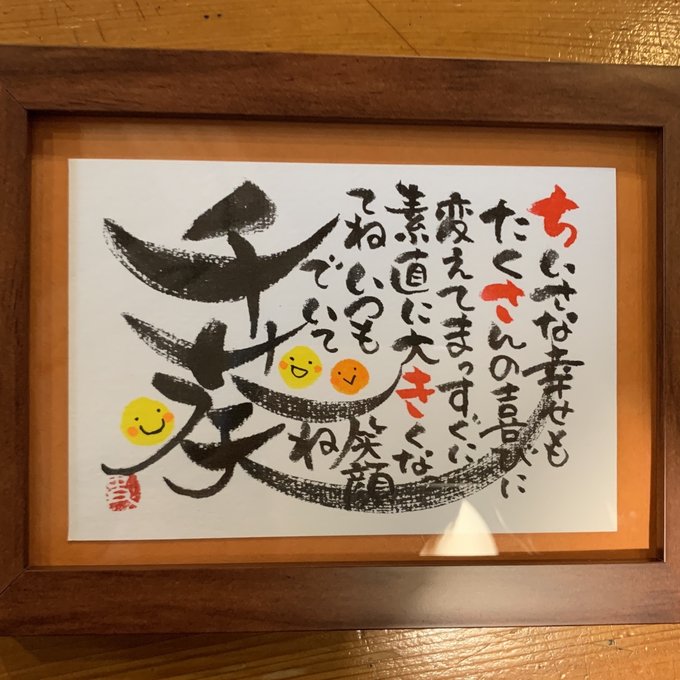 ちいさな幸せも
たくさんの喜びに
変えてまっすぐに
素直に大きくなっ
てねいつも笑顔
でいてね
千